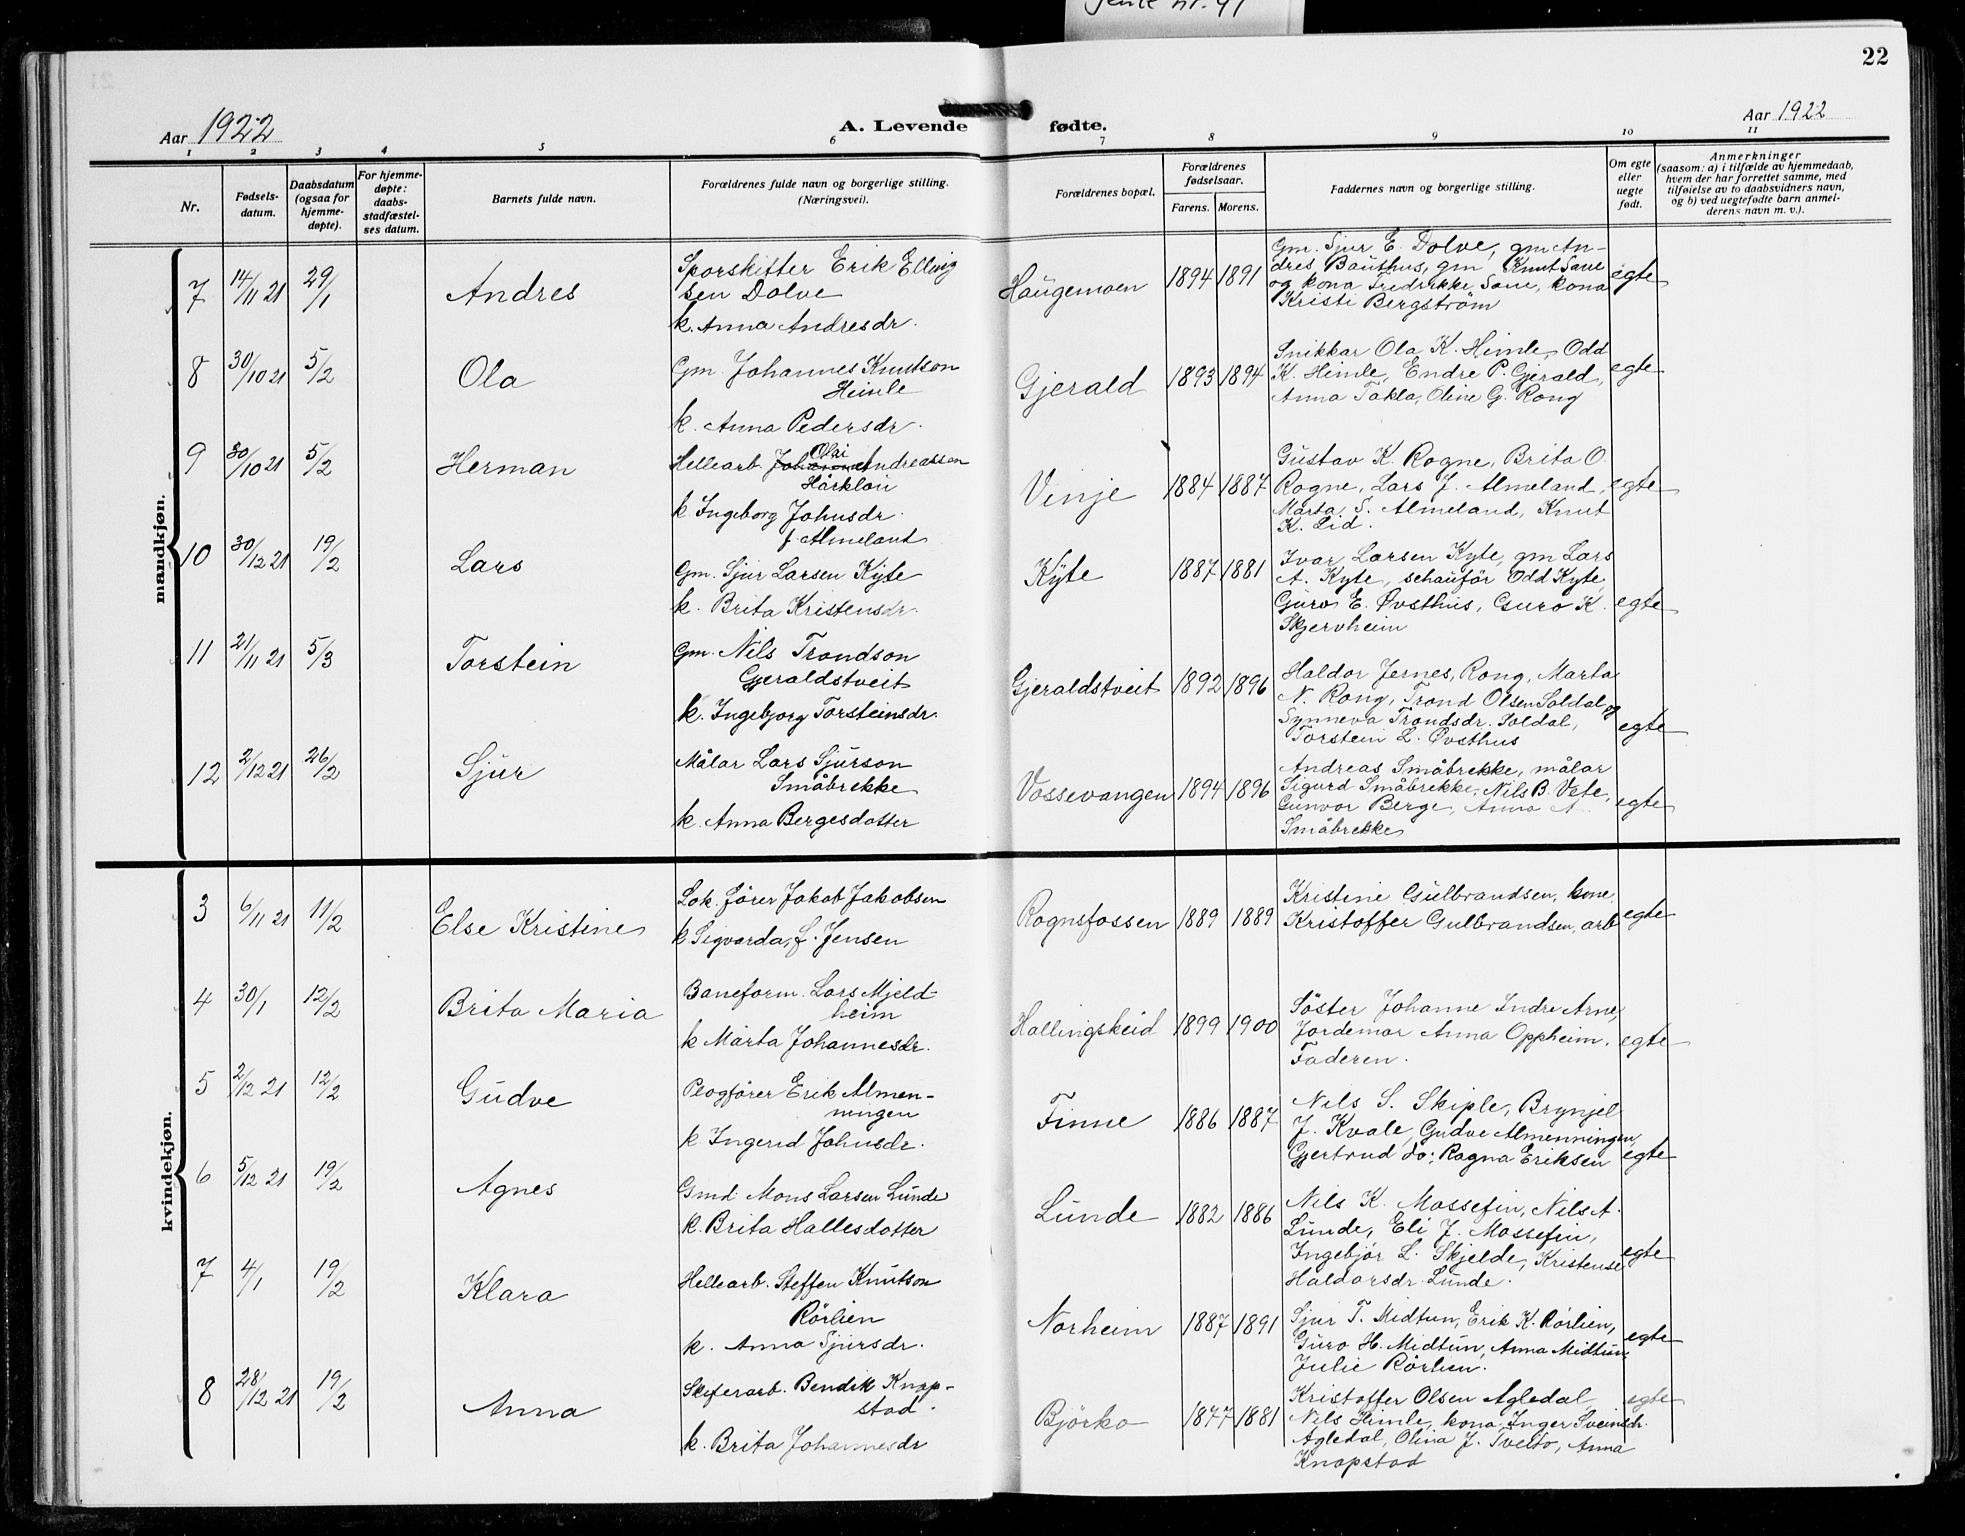 Jente nr. 41
22
Aar 1922
A. Levende fødte.
Aar 1922
1 2 3 4 5 6 7 8 9 10 11
Nr.
Fødsels-
datum.
Daabsdatum
(ogsaa for
hjemme-
døpte).
For hjemme-
døpte:
daabs-
stadfæstel-
ses datum.
Barnets fulde navn.
Forældrenes fulde navn og borgerlige stilling.
(Næringsvei).
Forældrenes bopæl.
Forældrenes
fødselsaar.
Farens. Morens.
Faddernes navn og borgerlige stilling.
Om egte
eller
uegte
født.
Anmerkninger
(saasom: a) i tilfælde av hjemmedaab,
hvem der har forrettet samme, med
tilføielse av to daabsvidners navn,
og b) ved uegtefødte barn anmel-
derens navn m. v.).
mandkjøn.
7 14/11 21 29/1 Andres
Sporskifter Erik Ellivig
sen Dolve
k. Anna Andresdr.
Haugemoen 1894 1891
Gm. Sjur E. Dolve, gm An-
dres Bauthus, gm Knut Saue
og kona Fredrikke Saue, kona
Kristi Bergström
egte
8 30/10 21 5/2 Ola
Gm. Johannes Knutson
Heimle
k. Anna Pedersdr.
Gjerald 1893 1894
Snikkar Ola K. Himle, Odd
K. Himle, Endre P. Gjerald,
Anna Takla, Oline G. Rong
egte
9 30/10 21 5/2 Herman
Olai
Hellearb. Andreassen
Hårklou
k. Ingeborg Johnsdr.
f Almeland
Vinje 1884 1887
Gustav K. Rogne, Brita O.
Rogne, Lars J. Almeland,
Marta S. Almeland, Knut
K. Lid.
egte
10 30/12 21 19/2 Lars
Gm. Sjur Larsen Kyte
k. Brita Kristensdr.
Kyte 1887 1881
Ivar Larsen Kyte, gm Lars
A. Kyte, schauför Odd Kyte,
Guro E. Øvsthus, Guro K.
Skjervheim
egte
11 21/11 21 5/3 Torstein
Gm. Nils Trondson
Gjeraldstveit
k. Ingebjorg Torsteinsdr.
Gjeraldstveit 1892 1896
Haldor Jernes, Rong, Marta
N. Rong, Trond Olsen Soldal og
Synneva Trondsdr. Soldal,
Torstein L. Øvsthus
egte
12 2/12 21 26/2 Sjur
Målar Lars Sjurson
Småbrekke
k. Anna Bergesdotter
Vossevangen 1894 1896
Andreas Småbrekke, målar
Sigurd Småbrekke, Nils B. Vete,
Gunvor Berge, Anna A.
Småbrekke
egte
kvindekjøn.
3 6/11 21 11/2 Else Kristine
Lok. fører Jakob Jakobsen
k Sigvarda, f. Jensen
Rognsfossen 1889 1889
Kristine Gulbrandsen, kone
Kristoffer Gulbrandsen, arb
egte
4 30/1 12/2 Brita Maria
Baneform. Lars Mjeld-
heim
k Marta Johannesdr.
Hallingskeid 1899 1900
Söster Johanne Indre Arne,
Jordemor Anna Oppheim,
Faderen.
egte
5 2/12 21 12/2 Gudve
Plogfører Erik Almen-
ningen
k Ingerid Johnsdr.
Finne 1886 1887
Nils S. Skiple, Brynjel
J. Kvale, Gudve Almenningen,
Gjertrud do; Ragna Eriksen
egte
6 5/12 21 19/2 Agnes
Gmd Mons Larsen Lunde
k. Brita Hallesdotter
Lunde 1882 1886
Nils K. Mossefin, Nils A.
Lunde, Eli J. Mossefin,
Ingebjør L. Skjelde, Kristense
Haldorsdr. Lunde.
egte
7 4/1 19/2 Klara
Hellearb. Steffen Knutson
Rörlien
k. Anna Sjursdr.
Norheim 1887 1891
Sjur T. Midtun, Erik K. Rörlien,
Guro H. Midtun, Anna Midtun,
Julie Rörlien.
egte
8 28/12 21 19/2 Anna
Skiferarb. Bendik Knap-
stad.
k. Brita Johannesdr
Björko 1877 1881
Kristoffer Olsen Agledal
Nils Himle, kona Inger Sveinsdr.
Agledal, Olina J. Tveito, Anna
Knapstad
egte